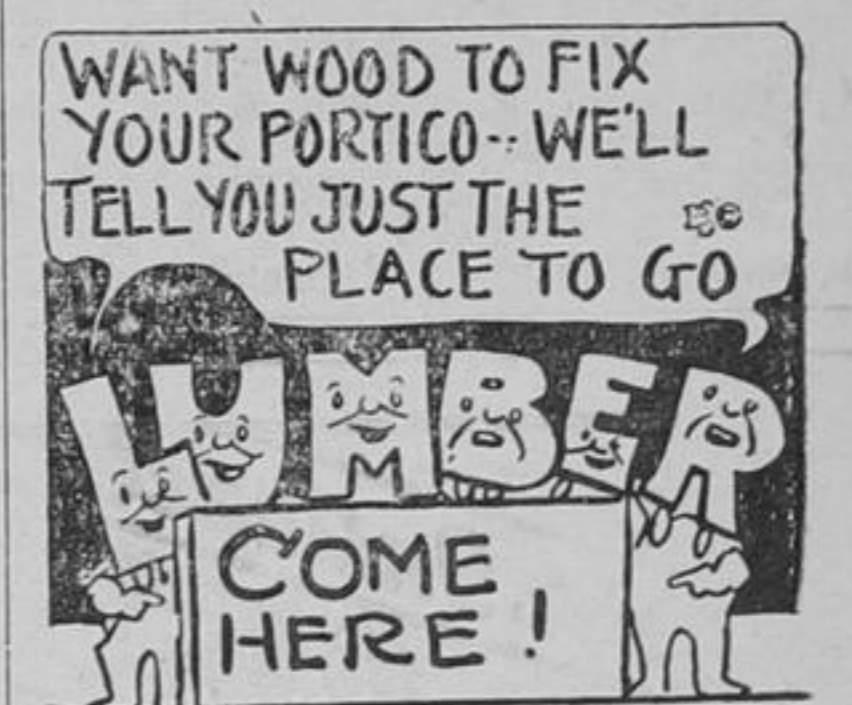 WANT WOOD TO FIX
YOUR PORTICO-- WE'LL
TELL YOU JUST THE
PLACE TO GO
LUMBER
COME
HERE!